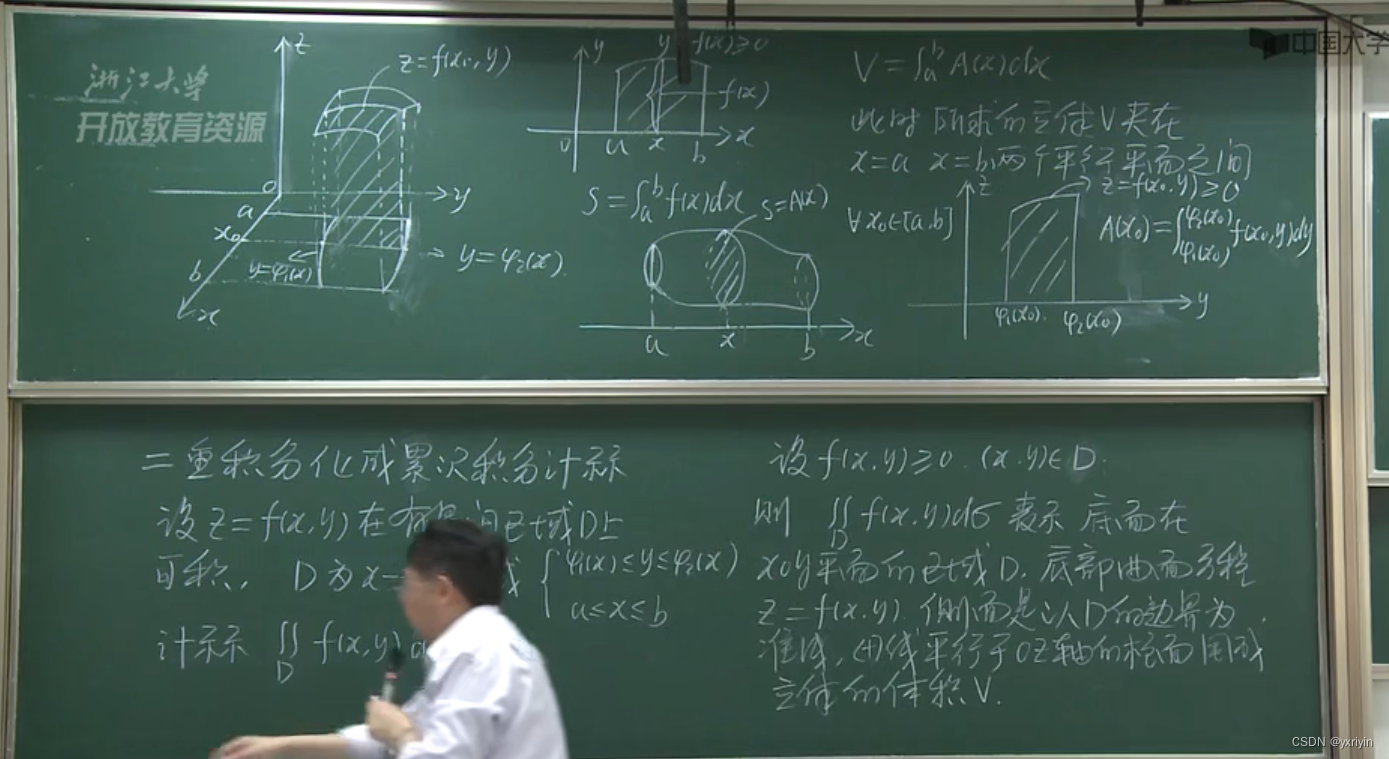 浙江大学
开放教育资源
中国大学
z
z=f(x₀,y)
o
y
a
x₀
b
x
y=φ₁(x)
y=φ₂(x)
y
y f(x)≥0
f(x)
0 a x b x
S=∫ₐᵇf(x)dx
S=A(x)
a x b x
V=∫ₐᵇA(x)dx
此时所求的立体V夹在
x=a x=b两个平行平面之间
∀x₀∈[a,b]
z
z=f(x₀,y)≥0
A(x₀)=∫_{φ₁(x₀)}^{φ₂(x₀)}f(x₀,y)dy
φ₁(x₀) φ₂(x₀)
y
二重积分化成累次积分计算
设z=f(x,y)在有 区域D上
可积, D为x- { φ₁(x)≤y≤φ₂(x)
a≤x≤b
计算 ∬ f(x,y)
D
设f(x,y)≥0.(x,y)∈D.
则 ∬ f(x,y)dσ 表示 底面在
D
xoy平面的区域D, 底部曲面方程
z=f(x,y) 侧面是以D的边界为
准线,母线平行于OZ轴的柱面围成
立体的体积V.
CSDN @yxriyin